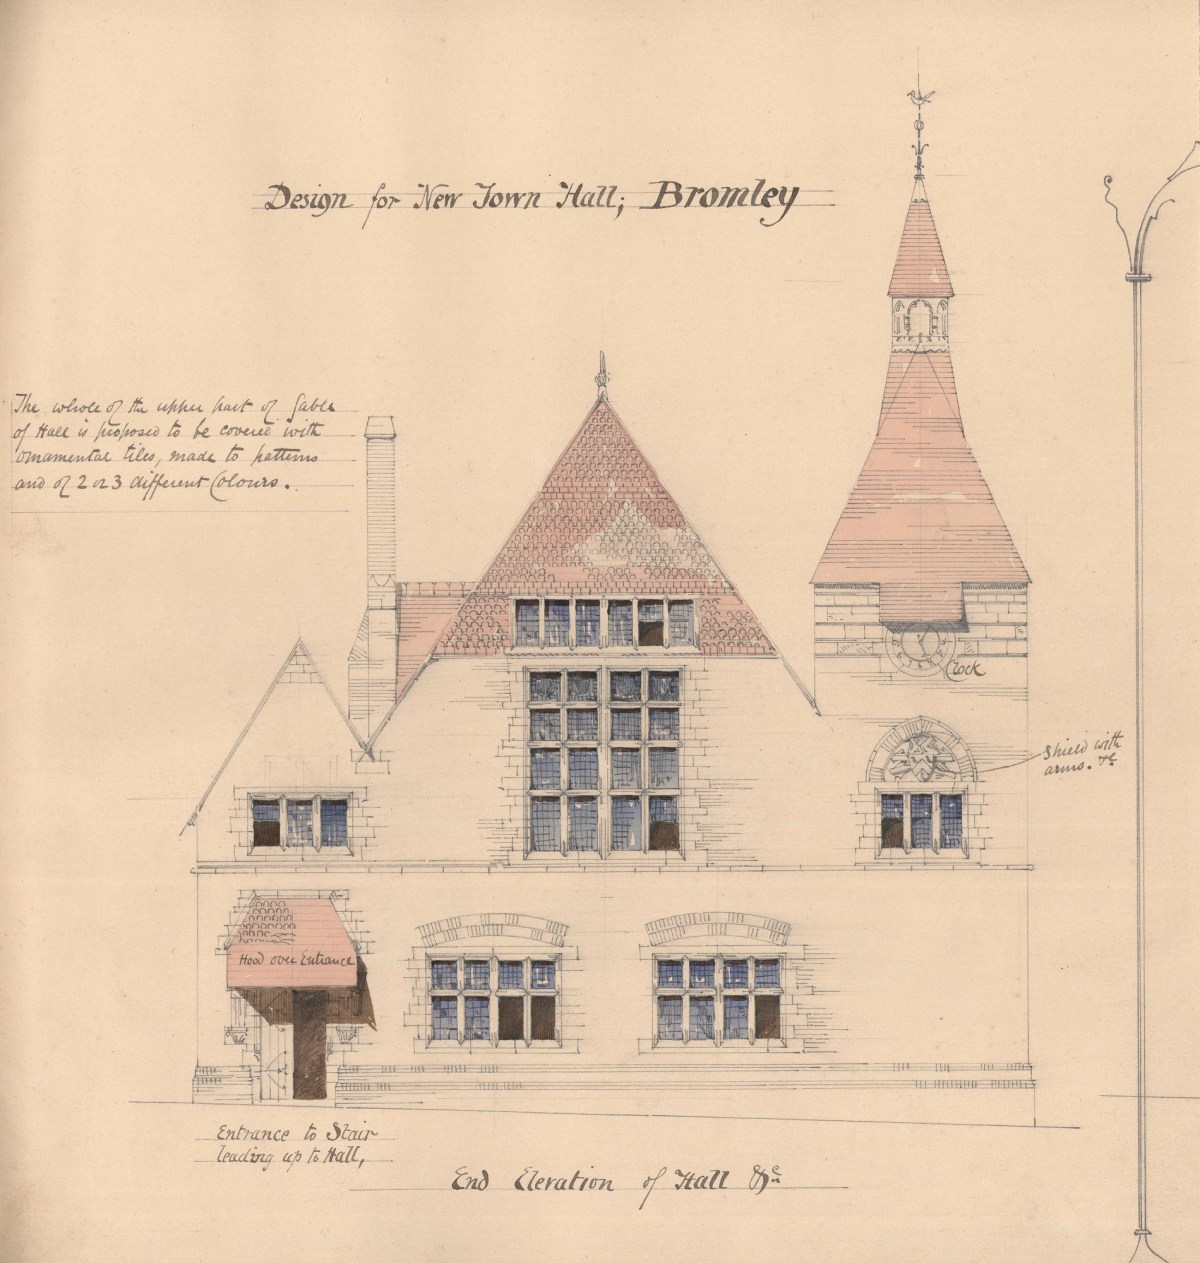 Design for New Town Hall; Bromley
The whole of the upper part of Gable
of Hall is proposed to be covered with
ornamental tiles, made to patterns
and of 2 or 3 different Colours.
Clock
Shield with
arms. &c
Hood over Entrance
Entrance to Stair
leading up to Hall,
End Elevation of Hall &c